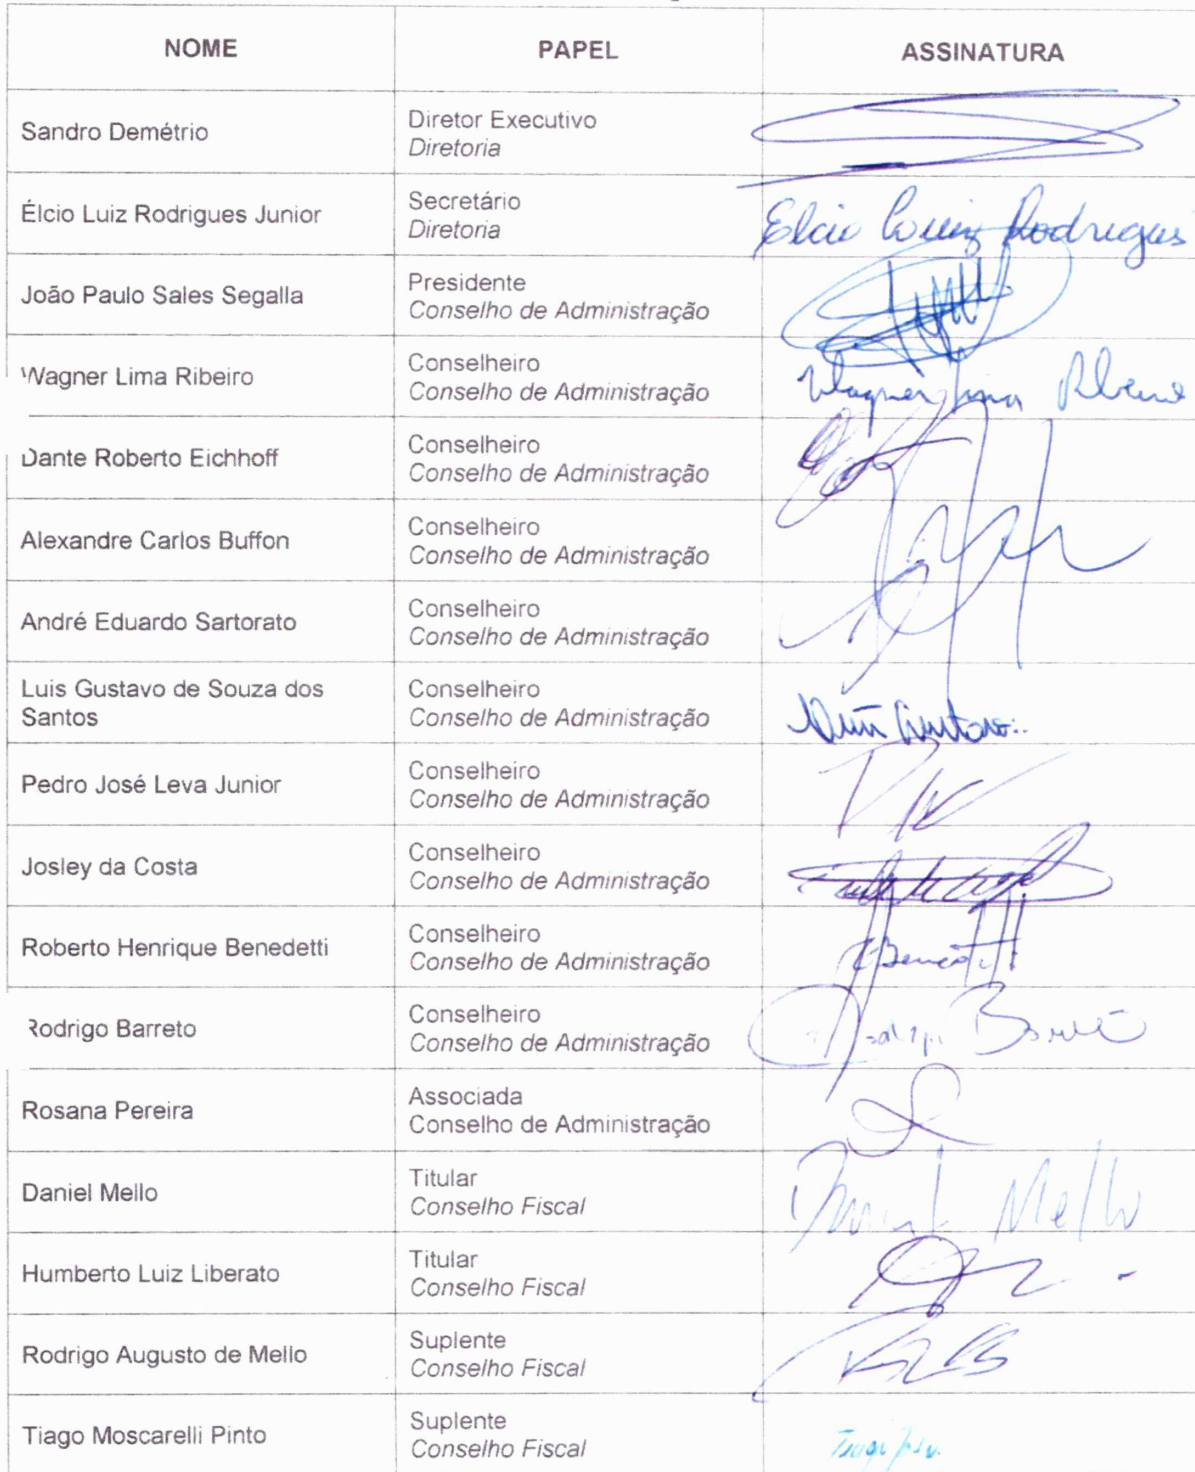 NOME PAPEL ASSINATURA
Sandro Demétrio Diretor Executivo
Diretoria
Élcio Luiz Rodrigues Junior Secretário
Diretoria Elcio Luiz Rodrigues
João Paulo Sales Segalla Presidente
Conselho de Administração
Wagner Lima Ribeiro Conselheiro
Conselho de Administração Wagner Lima
Dante Roberto Eichhoff Conselheiro
Conselho de Administração
Alexandre Carlos Buffon Conselheiro
Conselho de Administração
André Eduardo Sartorato Conselheiro
Conselho de Administração
Luis Gustavo de Souza dos Conselheiro
Santos Conselho de Administração
Pedro José Leva Junior Conselheiro
Conselho de Administração
Josley da Costa Conselheiro
Conselho de Administração
Roberto Henrique Benedetti Conselheiro
Conselho de Administração
Rodrigo Barreto Conselheiro
Conselho de Administração
Rosana Pereira Associada
Conselho de Administração
Daniel Mello Titular
Conselho Fiscal Daniel Mello
Humberto Luiz Liberato Titular
Conselho Fiscal
Rodrigo Augusto de Mello Suplente
Conselho Fiscal
Tiago Moscarelli Pinto Suplente
Conselho Fiscal